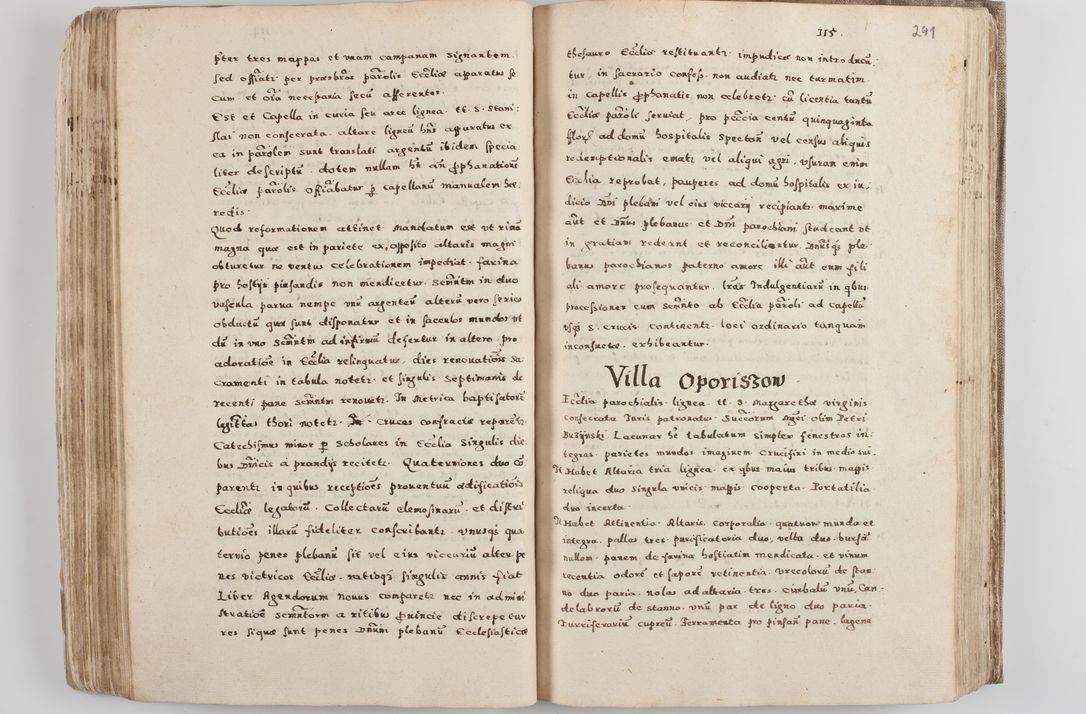 pter tres mappas et unam campanam signantem.
sed offiati per praesbros parolis Eccliae apparatus se
cum et oia necessaria secu afferentes.
Est et Capella in curia seu arce lignea. tt. S. Stani
slai non consecrata. altare ligneu hns apparatus ex
ea in parolem sunt translati argentu ibidem specia
liter descriptu. dotem nullam ht an pphanatione
Eccliae parolis offiabatur p capellanu manualem hae
redis.
Quod reformationem attinet Mandatum est ut rima
magna quae est in pariete ex opposito altaris magni
obturetur ne ventus celebrationem impediat. farina
pro hostijs pinsandis non mendicetur. Semntm in duo
vascula parva nempe unu argenteu alteru vero serico
obductu quae sunt disponatur et in sacculos mundos ut
du in uno Semntm ad infirmu defertur in altero pro
adoratioe in Ecclia relinquatur. dies renovatiois Sa
cramenti in tabula notetr. et singulis Septimanis de
recenti pane semntm renovetr. In Metrica baptisatore
legitta thori notetr. Cruces confractae reparetr
Catechismus minor p Scholares in Ecclia singulis die
bus Dnicis a prandijs recitetr. Quaterniones duo co
parentr in quibus receptioes proventuu aedificatiois
Eccliae legatoru. Collectaru elemosinaru. et distri
butioes illaru fideliter conscribantr. Unusqs qua
ternio penes plebanu sit vel eius viccariu alter pe
nes victricos Eccliae. ratioqs singulis annis fiat
Liber Agendorum novus comparetr nec in admini
stratioe semntoru a ritibus pvincie discrepetur
res siquae sunt penes Dnum plebanu Ecclesiasticae
115.
291
thesauro Eccliae restituantr impudicae non introducu
tur, in sacrario confess. non audiatr nec turmatim
in capellis pphanatis non celebretr. cu licentia tantu
Eccliae paroli serviat, pro peccia centu quinquaginta
flor. ad domu hospitalis spectan vel census aliquis
redemptionalis ematr vel aliqui agri, usuram enim
Ecclia reprobat, pauperes ad domu hospitalis ex iu,
dicio Dni plebani vel eius viccarij recipiantr. maxime
aut et Dnus plebanus et Dni parochiani studeant ut
in gratiam redeant et reconcilientur. Dnusqs ple
banus parochianos paterno amore illi aut eum fili
ali amore prosequantur. Lras Indulgentiaru in qbus
processiones cum semnto ab Ecclia paroli ad capella
usqs S. Crucis continentr. loci ordinario tanquam
inconsuetae. exhibeantur.
Villa Oporiszow
Ecclia parochialis. lignea. tt. S. Margarethae virginis
consecrata Iuris patronatus. Succorum Mgci olim Petri
Buzijnski. Lacunar ht tabulatum simplex fenestras in:
tegras. parietes mundos imaginem Crucifixi in medio sui.
It Habet Altaria tria lignea. ex qbus maius tribus mappis
reliqua duo singula unicis mappis cooperta. Portatilia
duo incerta.
It Habet Attinentia. Altaris. corporalia. quatuor munda et
integra. pallas tres. purificatoria duo, velta duo. bursa
nullam. panem de farina hostiatim mendicata. et vinum
recentia odore et sapore retinentia. urceoloru de stan
no duo paria. nolas ad altaria. tres. Cimbalu unu, Can
delabroru de stanno. unu par de ligno duo paria.
Turriferariu cupreu. Ferramenta pro pinsan pane. lagena